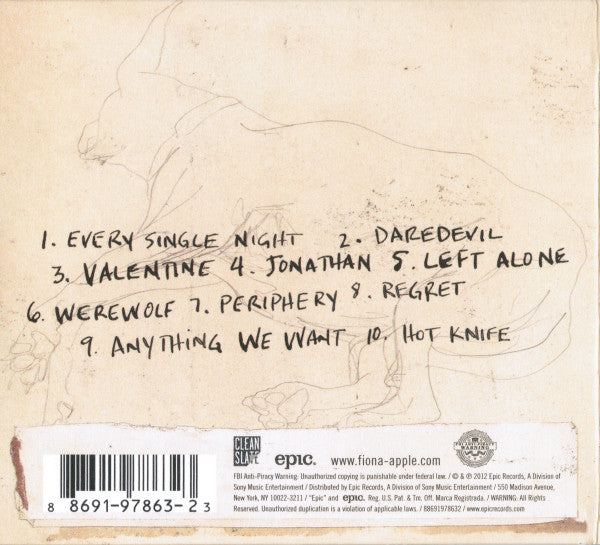 1. EVERY SINGLE NIGHT 2. DAREDEVIL
3. VALENTINE 4. JONATHAN 5. LEFT ALONE
6. WEREWOLF 7. PERIPHERY 8. REGRET
9. ANYTHING WE WANT 10. HOT KNIFE
CLEAN SLATE epic. www.fiona-apple.com
FBI ANTI-PIRACY WARNING
FBI Anti-Piracy Warning: Unauthorized copying is punishable under federal law. / © & ℗ 2012 Epic Records, A Division of
Sony Music Entertainment / Distributed by Epic Records, A Division of Sony Music Entertainment / 550 Madison Avenue,
New York, NY 10022-3211 / "Epic" and epic. Reg. U.S. Pat. & Tm. Off. Marca Registrada. / WARNING: All Rights
Reserved. Unauthorized duplication is a violation of applicable laws. / 88691978632 / www.epicrecords.com
8 86919-78632 3